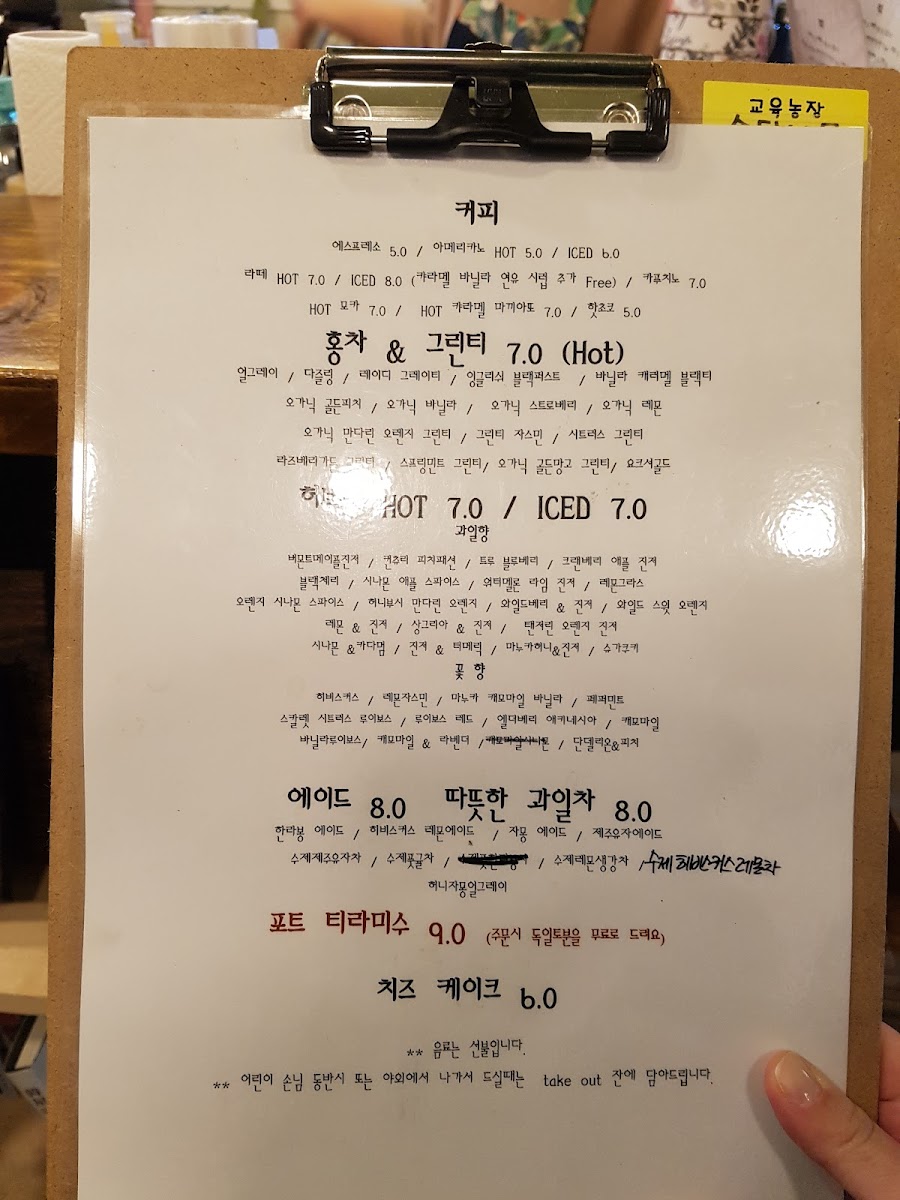 교육농장
커피
에스프레소 5.0 / 아메리카노 HOT 5.0 / ICED 6.0
라떼 HOT 7.0 / ICED 8.0 (캬라멜 바닐라 연유 시럽 추가 Free) / 카푸치노 7.0
HOT 모카 7.0 / HOT 캬라멜 마끼아또 7.0 / 핫초코 5.0
홍차 & 그린티 7.0 (Hot)
얼그레이 / 다즐링 / 레이디 그레이티 / 잉글리쉬 블랙퍼스트 / 바닐라 캐러멜 블랙티
오가닉 골든피치 / 오가닉 바닐라 / 오가닉 스트로베리 / 오가닉 레몬
오가닉 만다린 오렌지 그린티 / 그린티 자스민 / 시트러스 그린티
라즈베리가든 그린티 / 스프링민트 그린티/ 오가닉 골든망고 그린티/ 요크셔골드
HOT 7.0 / ICED 7.0
과일향
버몬트메이플진저 / 컨츄리 피치패션 / 트루 블루베리 / 크랜베리 애플 진저
블랙체리 / 시나몬 애플 스파이스 / 워터멜론 라임 진저 / 레몬그라스
오렌지 시나몬 스파이스 / 허니부시 만다린 오렌지 / 와일드베리 & 진저 / 와일드 스윗 오렌지
레몬 & 진저 / 상그리아 & 진저 / 탠저린 오렌지 진저
시나몬 &카다멈 / 진저 & 터메릭 / 마누카허니&진저 / 슈가쿠키
꽃 향
히비스커스 / 레몬자스민 / 마누카 캐모마일 바닐라 / 페퍼민트
스칼렛 시트러스 루이보스 / 루이보스 레드 / 엘더베리 에키네시아 / 캐모마일
바닐라루이보스/ 캐모마일 & 라벤더 / 캐모마일시나몬 / 단델리온&피치
에이드 8.0 따뜻한 과일차 8.0
한라봉 에이드 / 히비스커스 레몬에이드 / 자몽 에이드 / 제주유자에이드
수제제주유자차 / 수제풋귤차 / / 수제레몬생강차 /수제 히비스커스레몬차
허니자몽얼그레이
포트 티라미수 9.0 (주문시 독일토분을 무료로 드려요)
치즈 케이크 6.0
** 음료는 선불입니다.
** 어린이 손님 동반시 또는 야외에서 나가서 드실때는 take out 잔에 담아드립니다.